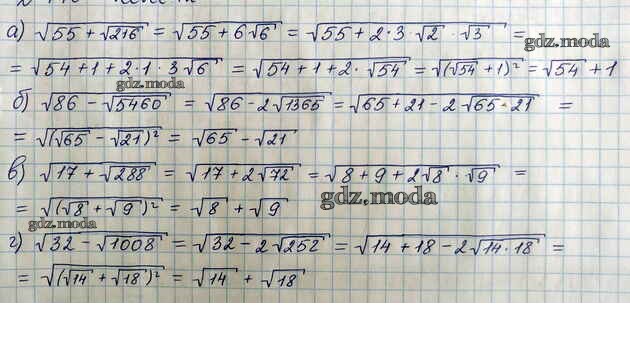 а) √(55 + √216) = √(55 + 6√6) = √(55 + 2·3·√2·√3) =
gdz.moda
= √(54 + 1 + 2·1·3√6) = √(54 + 1 + 2·√54) = √((√54 + 1)²) = √54 + 1
gdz.moda
б) √(86 − √5460) = √(86 − 2√1365) = √(65 + 21 − 2√(65·21)) =
= √((√65 − √21)²) = √65 − √21
в) √(17 + √288) = √(17 + 2√72) = √(8 + 9 + 2√8·√9) =
gdz.moda
= √((√8 + √9)²) = √8 + √9
gdz.moda
г) √(32 − √1008) = √(32 − 2√252) = √(14 + 18 − 2√(14·18)) =
= √((√14 + √18)²) = √14 + √18